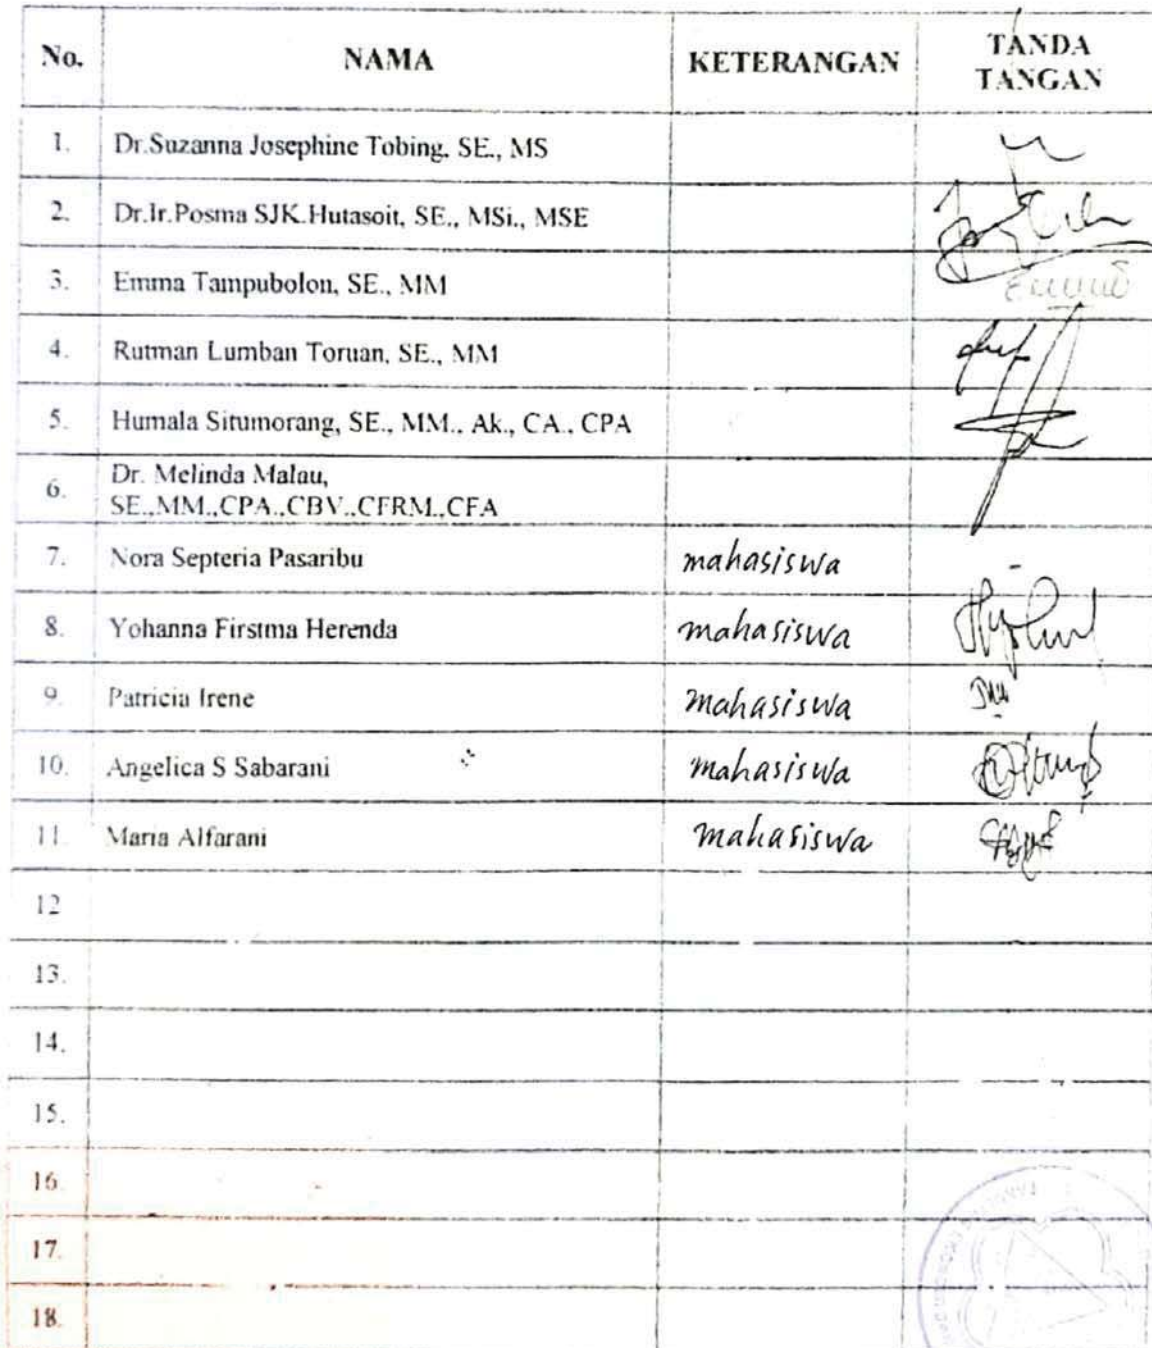 No. NAMA KETERANGAN TANDA TANGAN
1. Dr.Suzanna Josephine Tobing, SE., MS
2. Dr.Ir.Posma SJK.Hutasoit, SE., MSi., MSE
3. Emma Tampubolon, SE., MM
4. Rutman Lumban Toruan, SE., MM
5. Humala Situmorang, SE., MM., Ak., CA., CPA
6. Dr. Melinda Malau,
SE.,MM.,CPA.,CBV.,CFRM.,CFA
7. Nora Septeria Pasaribu mahasiswa
8. Yohanna Firstma Herenda mahasiswa
9. Patricia Irene mahasiswa
10. Angelica S Sabarani mahasiswa
11. Maria Alfarani mahasiswa
12
13.
14.
15.
16.
17.
18.